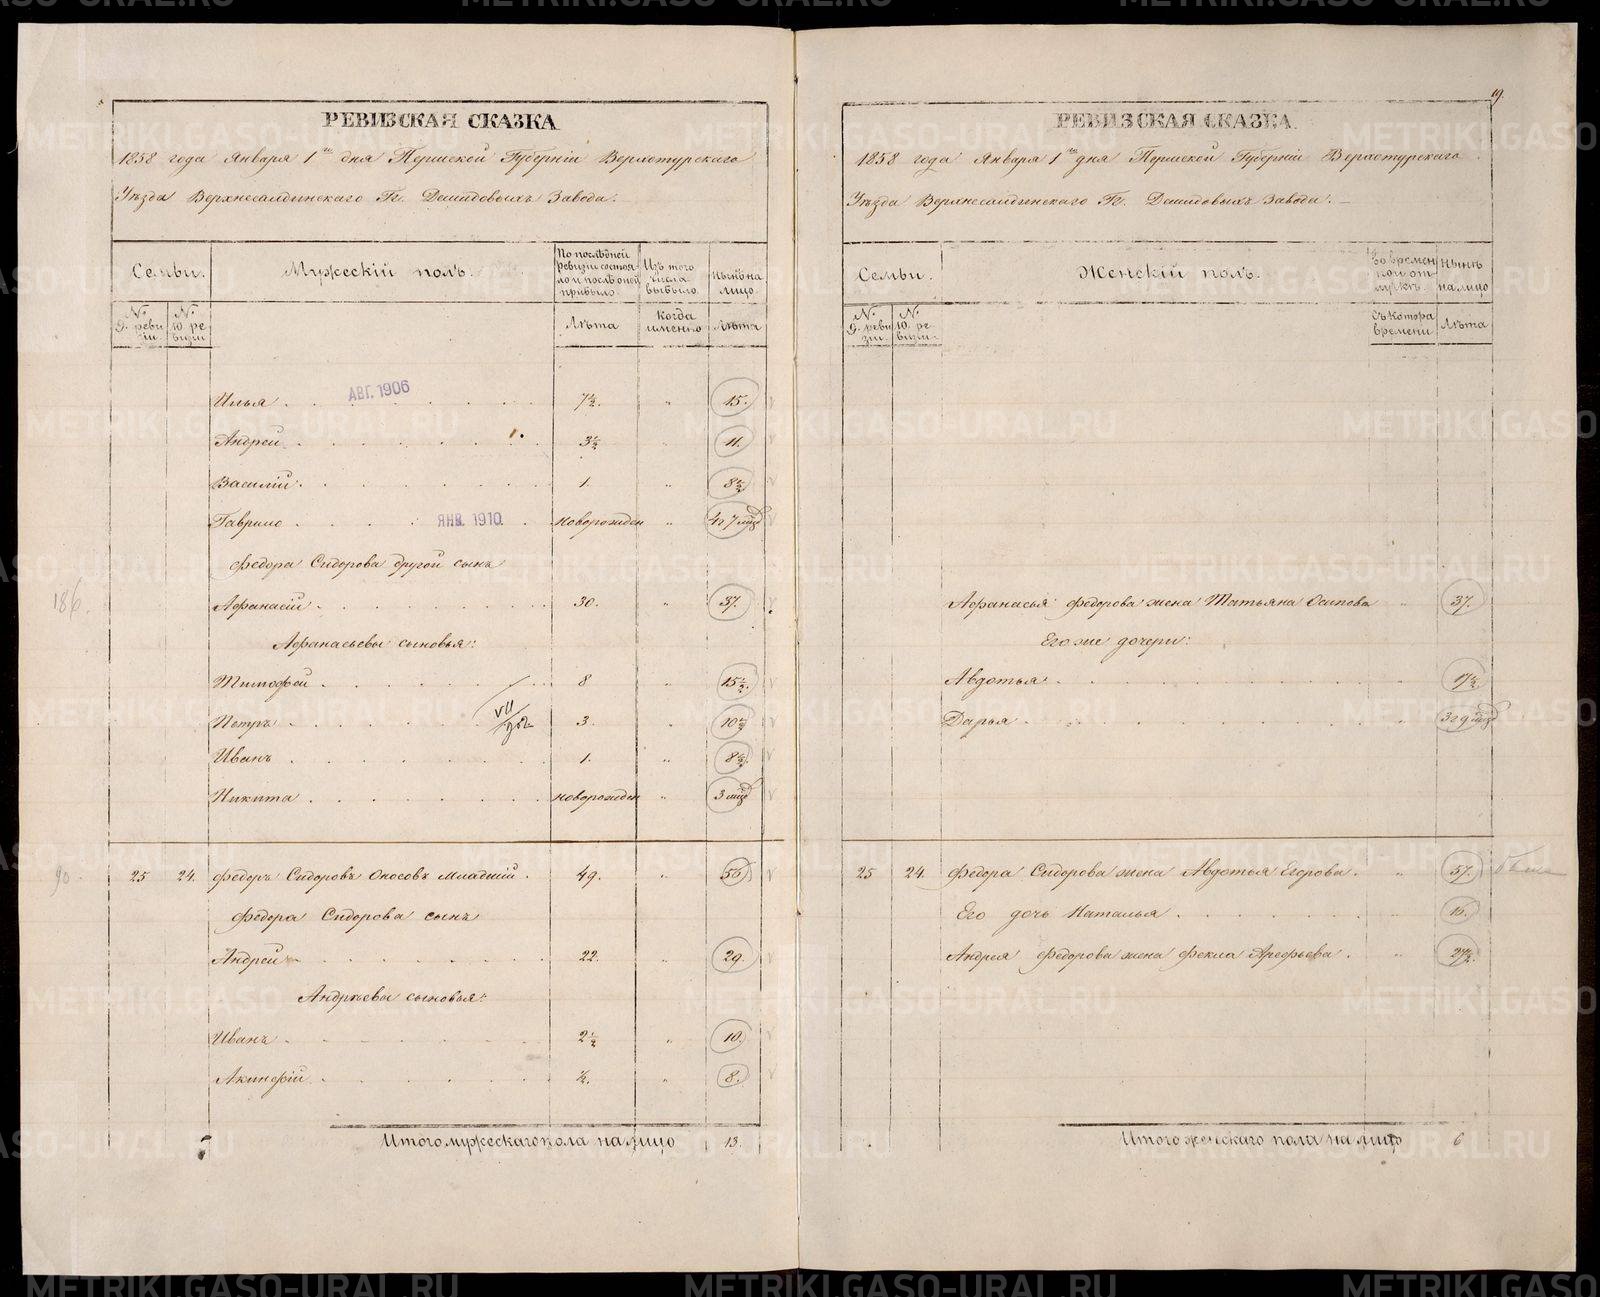 РЕВИЗСКАЯ СКАЗКА
1858 года Января 1го дня Пермской Губерніи Верхотурскаго
Уѣзда Верхнесалдинскаго Гг. Демидовыхъ Завода.
Семьи.
Мужескій полъ.
По послѣдней ревизіи состояло и послѣ оной прибыло.
Изъ того числа выбыло.
нынѣ на лицо.
№ 9. ревизіи.
№ 10. ревизіи
Лѣта
Когда именно
Лѣта
Илья . 7½. " 15.
АВГ. 1906
Андрей . 3½ " 11.
Василій . 1. " 8½
Гаврило . новорожден " 4 г 7 мцд
ЯНВ. 1910
Федора Сидорова другой сынъ
186.
Афанасій . 30. " 37.
Афанасьевы сыновья:
Тимофей . 8 " 15½.
Петръ . 3. " 10½
VII
Иванъ . 1. " 8½.
Никита . новорожден " 3 мцд
90.
25 24. Федоръ Сидоровъ Оносовъ Младшій . 49. " 56
Федора Сидорова сынъ
Андрей . 22. " 29.
Андрѣевы сыновья:
Иванъ . 2½ " 10.
Акинфій . ½. " 8.
Итого мужескаго пола на лицо 13.
19.
РЕВИЗСКАЯ СКАЗКА
1858 года Января 1го дня Пермской Губерніи Верхотурскаго
Уѣзда Верхнесалдинскаго Гг. Демидовыхъ Завода.
Семьи.
Женскій полъ.
Во временной отлучкѣ.
нынѣ на лицо
№ 9. ревизіи.
№ 10. ревизіи.
Съ котора времени
Лѣта
Афанасья Федорова жена Татьяна Осипова " 37.
Его же дочери:
Авдотья . 17½
Дарья . 3 г 9 мцд
25 24. Федора Сидорова жена Авдотья Егорова . " 57.
Его дочь Наталья . 16.
Андрея Федорова жена Фекла Арефьева . " 27½.
Итого женскаго пола на лицо 6
METRIKI.GASO-URAL.RU